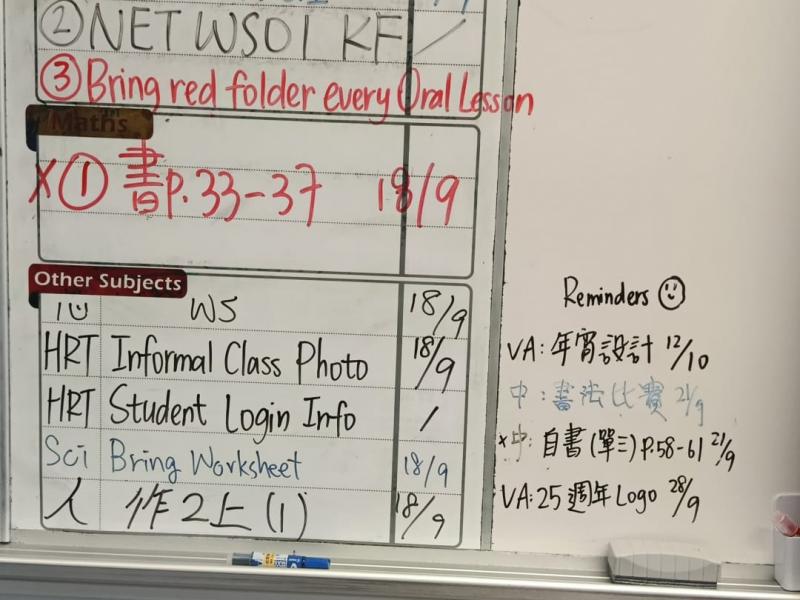 ② NET WS01 KF /
③ Bring red folder every Oral Lesson
Maths
X ① 書p.33-37 18/9
Other Subjects
WS 18/9
HRT Informal Class Photo 18/9
HRT Student Login Info /
Sci Bring Worksheet 18/9
人 作2上(1) 18/9
Reminders ☺
VA: 年宵設計 12/10
中: 書法比賽 21/9
x中: 自書(單三)p.58-61 21/9
VA: 25週年Logo 28/9